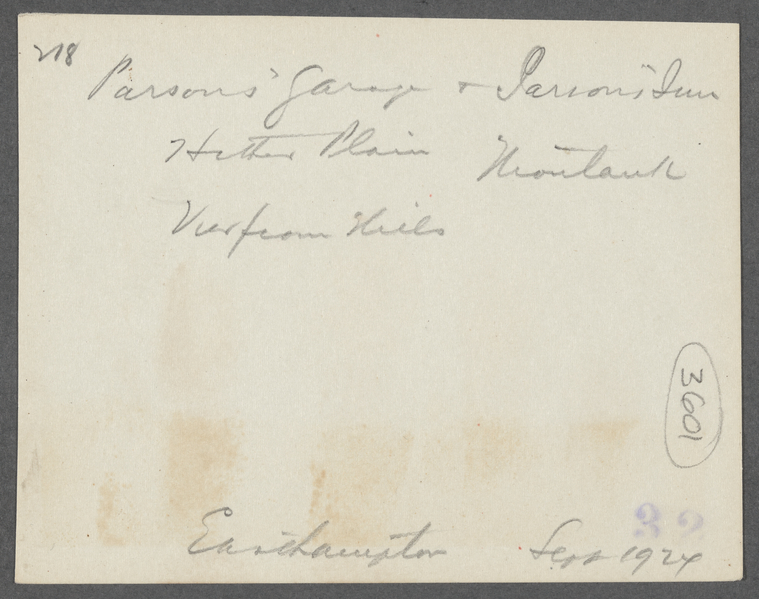 218
Parsons' Garage + Parsons' Inn
Hither Plain Montauk
View from Hills
3601
32
Easthampton Sept 1924